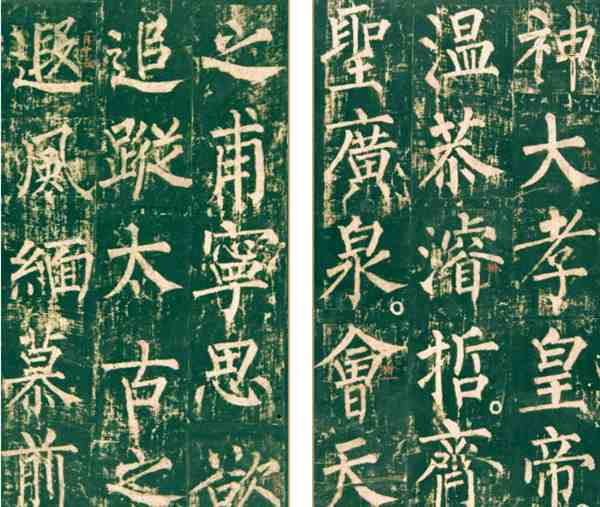 神大孝皇帝。
温恭濬哲。齊
聖廣泉。會天
之甫寧思欲
追蹤太古之
遐風緬慕前